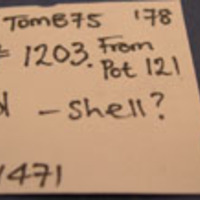 TOMB75 '78
= 1203. From
Pot 121
- Shell?
1471